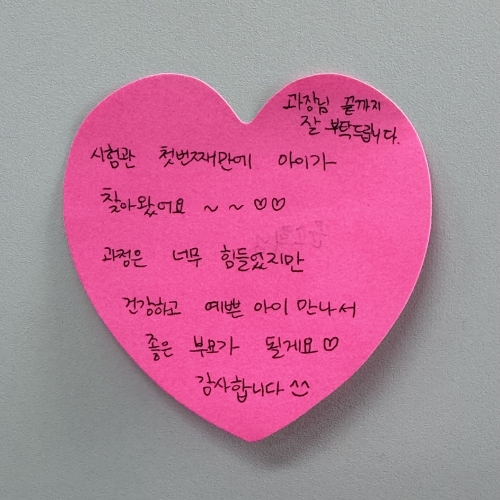 과장님 끝까지
잘 부탁드립니다.
시험관 첫번째만에 아이가
찾아왔어요 ~ ~ ♡♡
과정은 너무 힘들었지만
건강하고 예쁜 아이 만나서
좋은 부모가 될게요♡
감사합니다 ^^